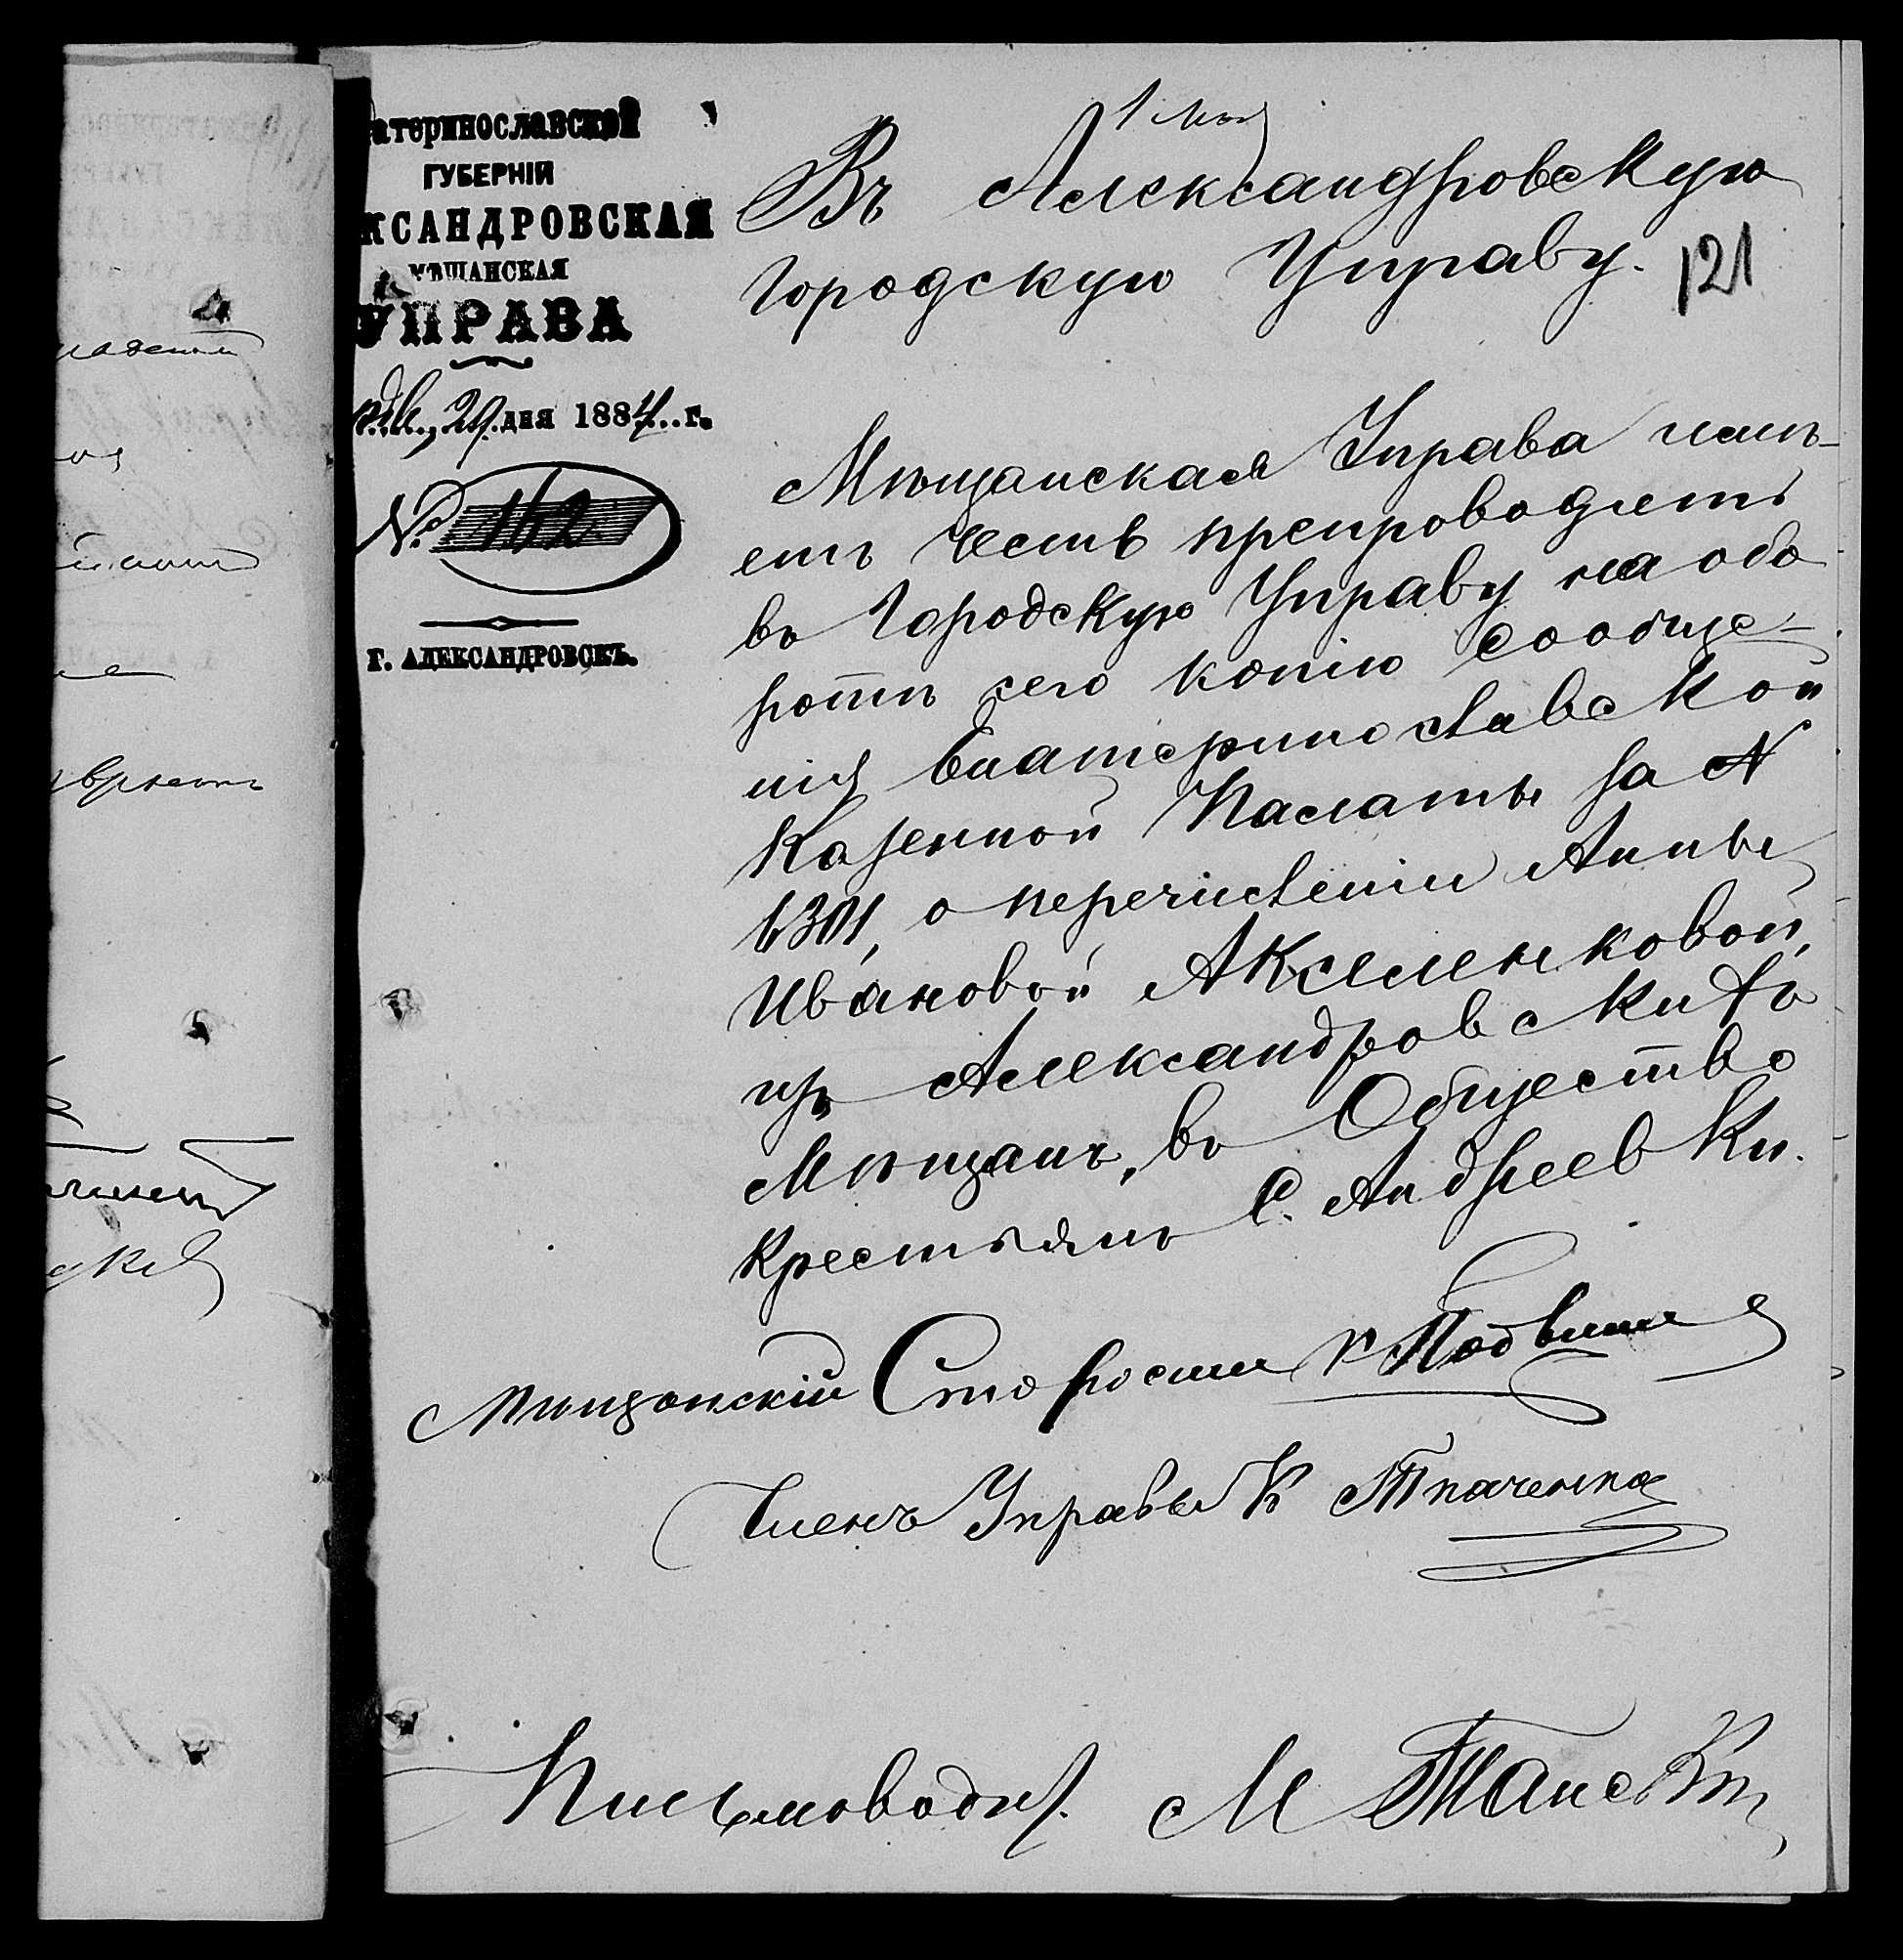 атеринославской
ГУБЕРНІИ
КСАНДРОВСКАЯ
МѢЩАНСКАЯ
УПРАВА
29 дня 1884 г.
№ 142
Г. АЛЕКСАНДРОВСКЪ.
1 мая
Въ Александровскую
Городскую Управу.
121
Мѣщанская Управа имѣ-
етъ честь препроводить
въ Городскую Управу на обо
ротѣ сего копію сообще-
нія Екатеринославской
Казенной Палаты за №
6301, о перечисленіи Анны
Ивановой Аксененковой,
изъ Александровскихъ
Мѣщанъ, въ Общество
Крестьянъ с. Андреевки.
Мѣщанскій Староста
Членъ Управы К Ткаченко
Письмовод. М